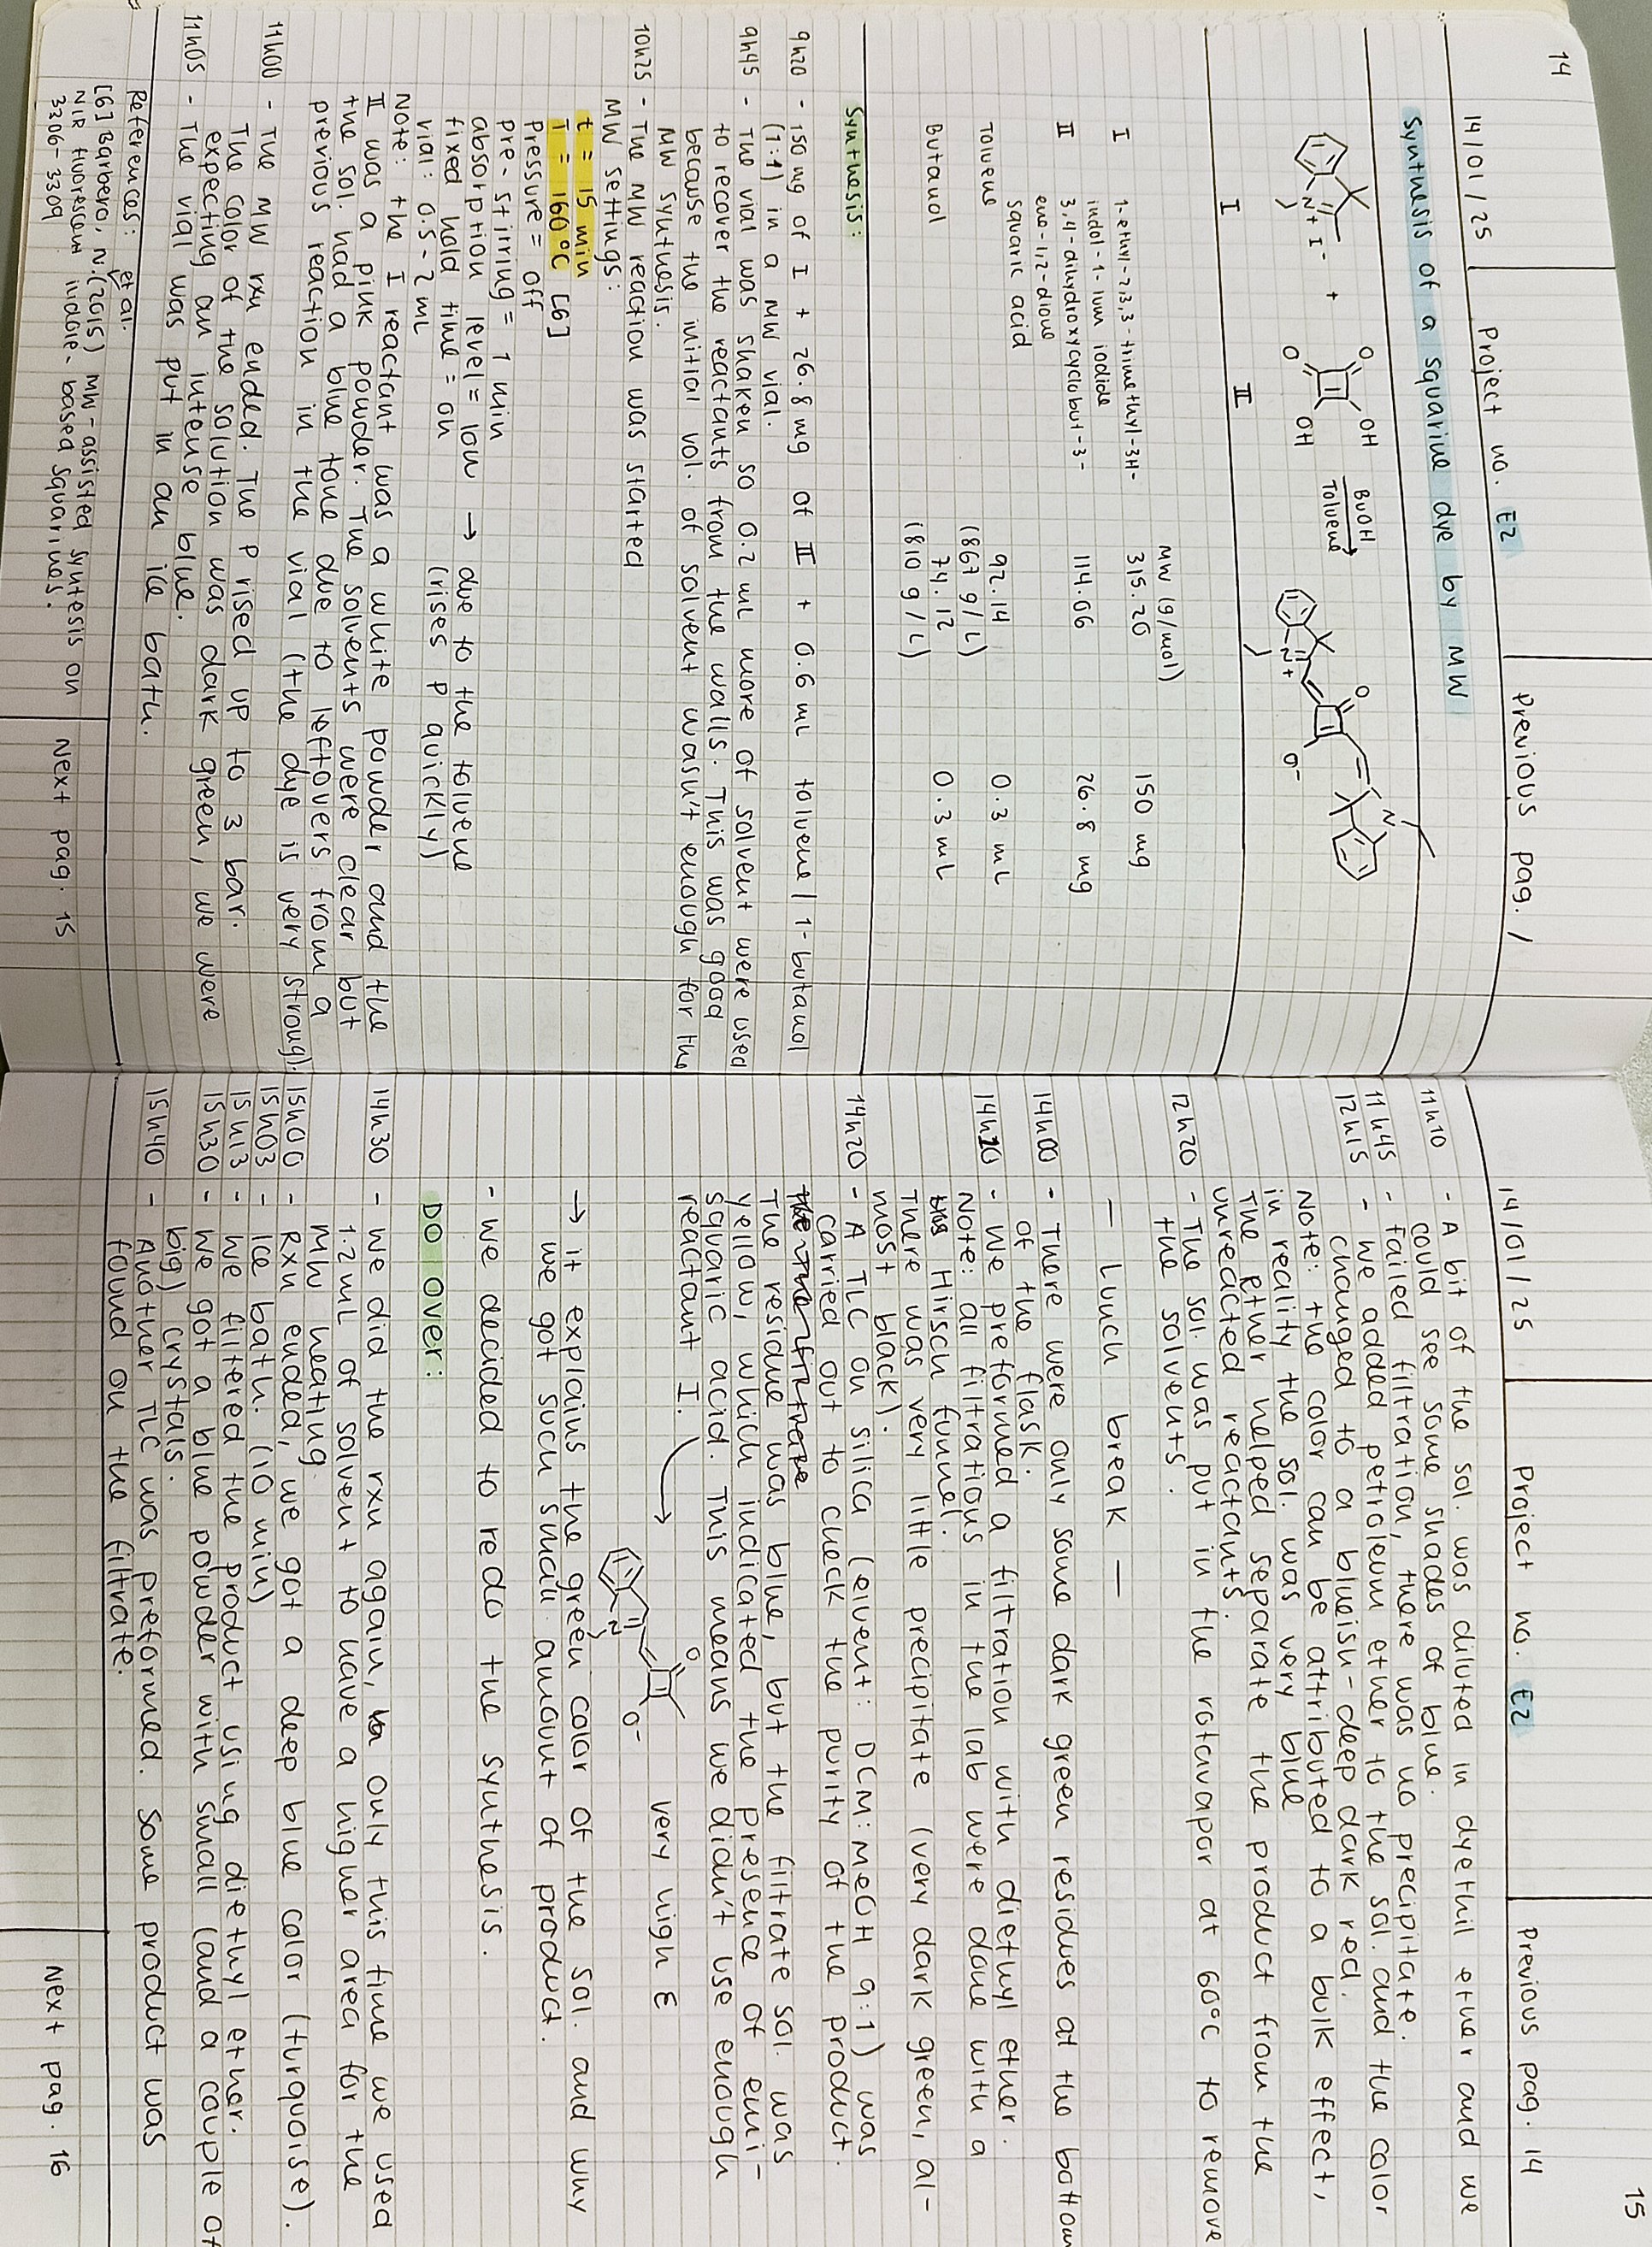 14
14/01/25
Project no. E2
Previous pag. /
Synthesis of a squarine dye by MW
N+ I-
+
O
O
OH
OH
BuOH
Toluene
N+
O
O-
N
I
II
MW (g/mol)
I
1-ethyl-2,3,3-trimethyl-3H-
indol-1-ium iodide
315.20
150 mg
II
3,4-dihydroxycyclobut-3-
ene-1,2-dione
squaric acid
114.06
26.8 mg
Toluene
92.14
(867 g/L)
0.3 mL
Butanol
74.12
(810 g/L)
0.3 mL
Synthesis:
9h20 - 150 mg of I + 26.8 mg of II + 0.6 mL toluene/1-butanol
(1:1) in a MW vial.
9h45 - The vial was shaken so 0.2 mL more of solvent were used
to recover the reactants from the walls. This was good
because the initial vol. of solvent wasn't enough for the
MW synthesis.
10h25 - The MW reaction was started
MW settings:
t = 15 min
T = 160°C [6]
Pressure = off
Pre-stirring = 1 min
absorption level = low → due to the toluene
fixed hold time = on (rises P quickly)
vial: 0.5-2 mL
Note: the I reactant was a white powder and the
II was a pink powder. The solvents were clear but
the sol had a blue tone due to leftovers from a
previous reaction in the vial (the dye is very strong).
11h00 - The MW rxn ended. The P rised up to 3 bar.
The color of the solution was dark green, we were
expecting an intense blue.
11h05 - The vial was put in an ice bath.
References: et al.
[6] Barbero, N. (2015) MW-assisted syntesis on
NIR fluorescent indole-based squarines.
3306-3309
Next pag. 15
15
14/01/25
Project no. E2
Previous pag. 14
11h10 - A bit of the sol. was diluted in dyethil ether and we
could see some shades of blue.
11h45 - Failed filtration, there was no precipitate.
12h15 - We added petroleum ether to the sol. and the color
changed to a blueish-deep dark red.
Note: the color can be attributed to a bulk effect,
in reality the sol. was very blue
The ether helped separate the product from the
unreacted reactants.
12h20 - The sol. was put in the rotavapor at 60°C to remove
the solvents.
— Lunch break —
14h00 - There were only some dark green residues at the bottom
of the flask.
14h10 - We preformed a filtration with diethyl ether.
Note: all filtrations in the lab were done with a
this Hirsch funnel.
There was very little precipitate (very dark green, al-
most black).
14h20 - A TLC on silica (eluent: DCM:MeOH 9:1) was
carried out to check the purity of the product.
The residue was blue, but the filtrate sol. was
yellow, which indicated the presence of emi-
squaric acid. This means we didn't use enough
reactant I.
N
O
O-
very high ε
→ it explains the green color of the sol. and why
we got such small amount of product.
- We decided to redo the synthesis.
Do over:
14h30 - We did the rxn again, only this time we used
1.2 mL of solvent to have a higher area for the
MW heating.
15h00 - Rxn ended, we got a deep blue color (turquoise).
15h03 - Ice bath. (10 min)
15h13 - We filtered the product using diethyl ether.
15h30 - We got a blue powder with small (and a couple of
big) crystals.
15h40 - Another TLC was preformed. Some product was
found on the filtrate.
Next pag. 16